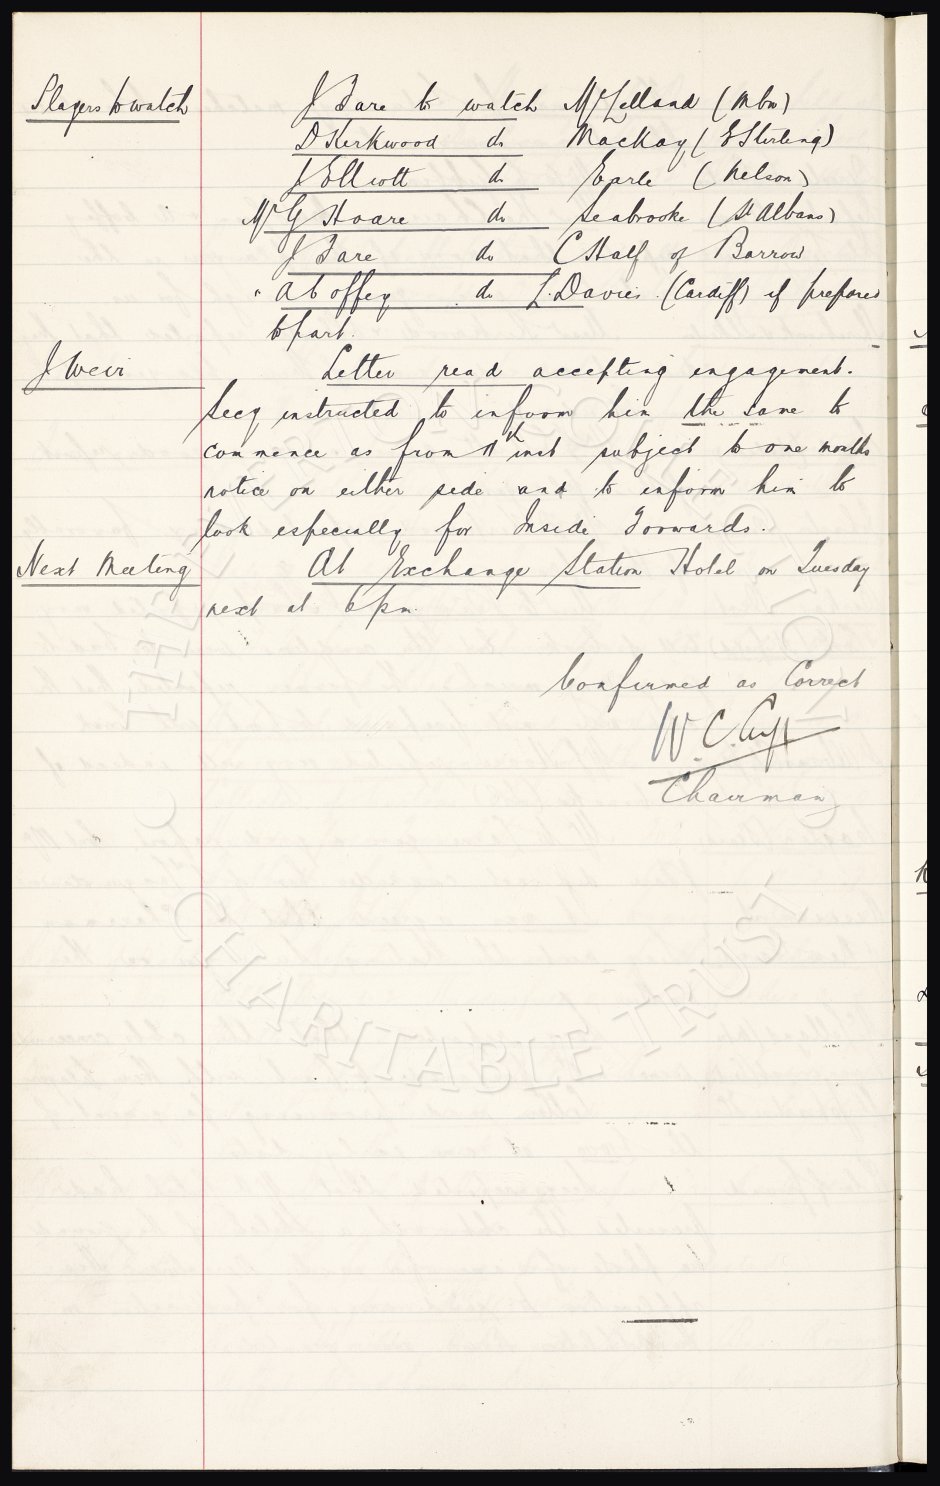 Players to watch J Fare to watch McLelland (Mbro)
D Kirkwood do Mackay (E Stirling)
J Elliott do Earle (Nelson)
Mr G Hoare do Seabrooke (St Albans)
J Fare do C Half of Barrow
" A Coffey do L. Davies (Cardiff) if prepared
to part.
J Weir Letter read accepting engagement.
Secy instructed to inform him the same to
commence as from 11th inst subject to one months
notice on either side and to inform him to
look especially for Inside Forwards.
Next Meeting At Exchange Station Hotel on Tuesday
next at 6 pm.
Confirmed as Correct
W. C. Cuff
Chairman
THE EVERTON COLLECTION
CHARITABLE TRUST